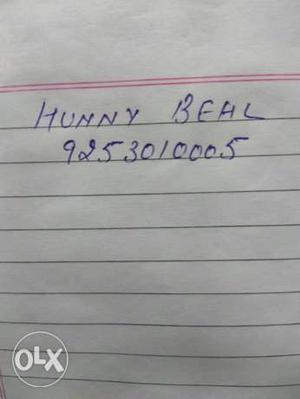 HUNNY BEHL
9253010005
OLX